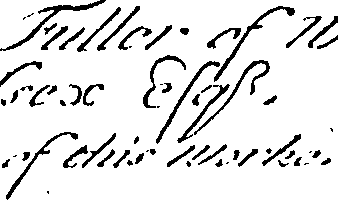 Fuller of W
ssex Esqr.
of this Worke.